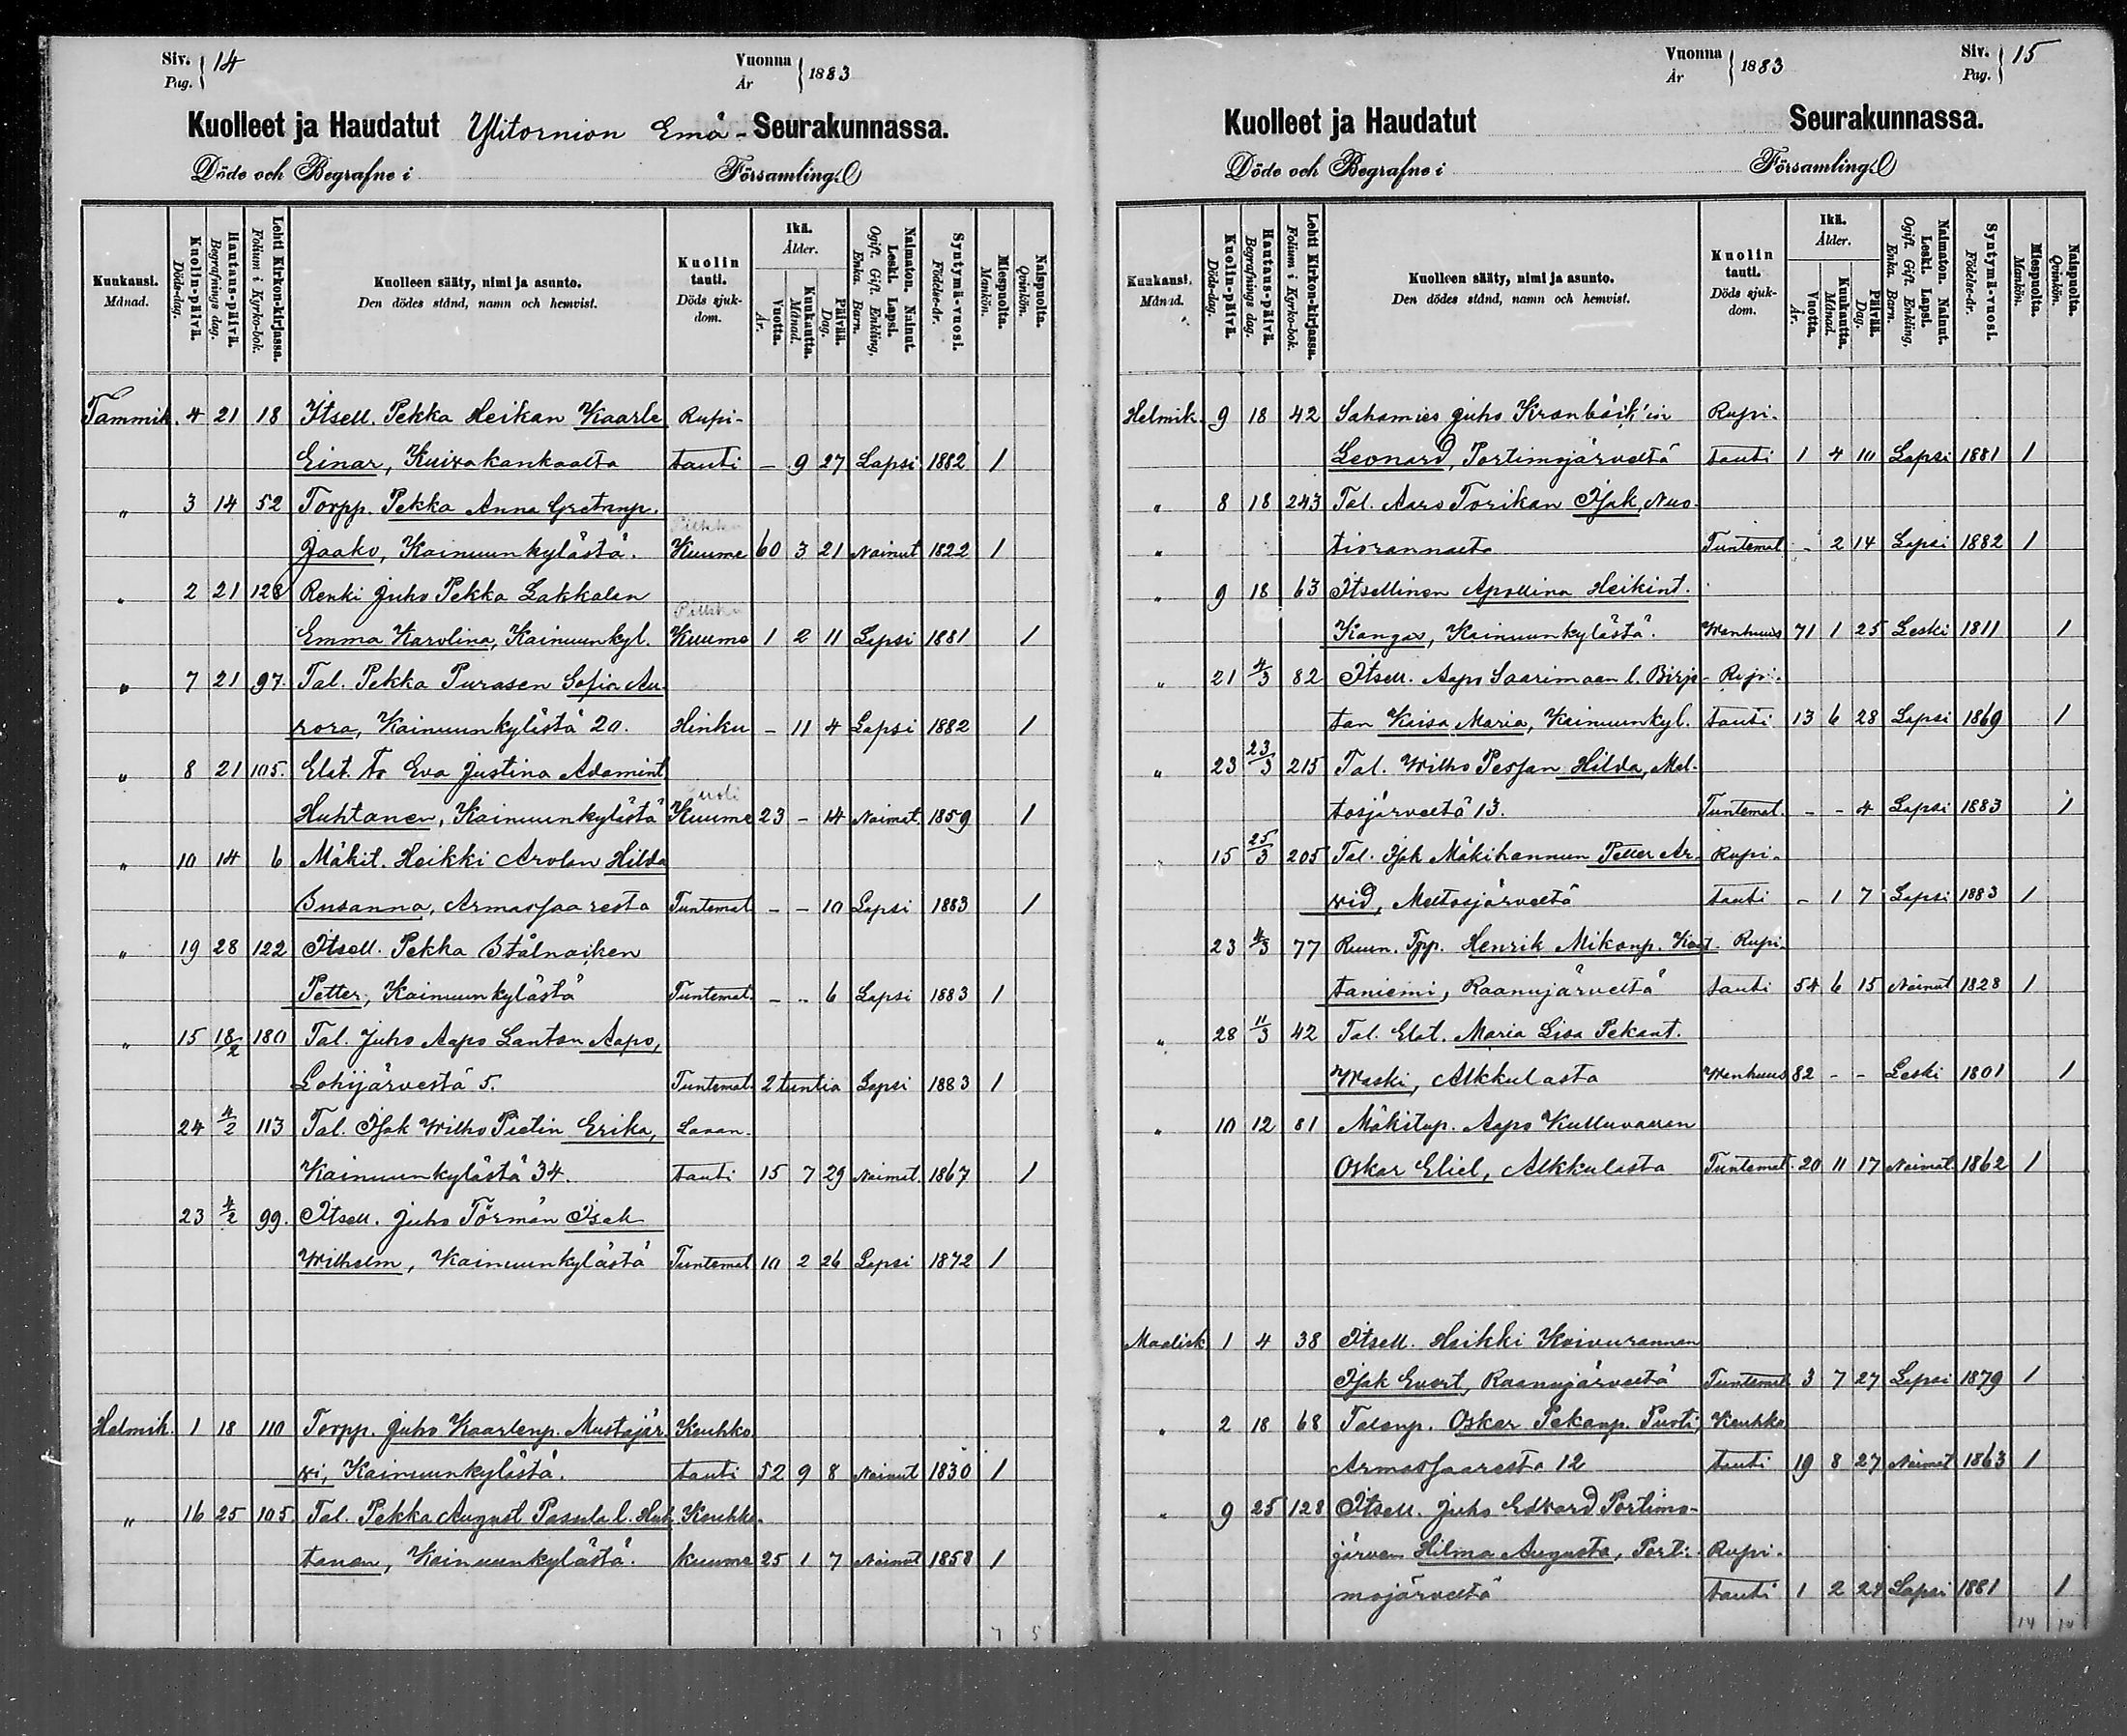 Siv. Pag. 14 Vuonna År 1883
Kuolleet ja Haudatut Ylitornion Emä-Seurakunnassa.
Döde och Begrafne i Församling.
Kuukausi. Månad. Kuolin-päivä. Döds-dag. Hautaus-päivä. Begrafnings dag. Lehti Kirkon-kirjassa. Folium i Kyrko-bok. Kuolleen sääty, nimi ja asunto. Den dödes stånd, namn och hemvist. Kuolin tauti. Döds sjuk-dom. Ikä. Ålder. Vuotta. År. Kuukautta. Månad. Päivää. Dag. Naimaton. Nainut. Leski. Lapsi. Ogift. Gift. Enkling, Enka. Barn. Syntymä-vuosi. Födelse-år. Miespuolta. Mankön. Naispuolta. Qvinkön.
Tammik. 4 21 18 Itsell. Pekka Heikan Kaarle Rupi-
Einar, Kuivakankaalta tauti - 9 27 Lapsi 1882 1
" 3 14 52 Torpp. Pekka Anna Gretanp.
Jaako, Kainuunkylästä. Kuume 60 3 21 Nainut 1822 1
" 2 21 128 Renki Juho Pekka Lakkalan
Emma Karolina, Kainuunkyl. Kuume 1 2 11 Lapsi 1881 1
" 7 21 97. Tal. Pekka Purasen Sofia Au-
rora, Kainuunkylästä 20. Hinku - 11 4 Lapsi 1882 1
" 8 21 105. Elat. tr Eva Justina Adamint
Huhtanen, Kainuunkylästä Kuume 23 - 14 Naimat. 1859 1
" 10 14 6 Mäkit. Heikki Arolan Hilda
Susanna, Armassaaresta Tuntemat - - 10 Lapsi 1883 1
" 19 28 122 Itsell. Pekka Stålnaiken
Petter, Kainuunkylästä Tuntemat. - - 6 Lapsi 1883 1
" 15 18/2 180 Tal. Juho Aapo Lanton Aapo,
Lohijärvestä 5. Tuntemat. 2 tuntia Lapsi 1883 1
24 4/2 113 Tal. Isak Wilho Pietin Erika, Lavan-
Kainuunkylästä 34. tauti 15 7 29 Naimat. 1867 1
23 4/2 99. Itsell. Juho Törmän Isak
Wilhelm, Kainuunkylästä Tuntemat 10 2 26 Lapsi 1872 1
Helmik. 1 18 110 Torpp. Juho Kaarlenp. Mustajär- Keuhko
vi, Kainuunkylästä. tauti 52 9 8 Nainut 1830 1
" 16 25 105 Tal. Pekka August Pasula l. Huh- Keuhko-
tanen, Kainuunkylästä. kuume 25 1 7 Naimat 1858 1
7 5
Vuonna År 1883 Siv. Pag. 15
Kuolleet ja Haudatut Seurakunnassa.
Döde och Begrafne i Församling.
Kuukausi. Månad. Kuolin-päivä. Döds-dag. Hautaus-päivä. Begrafnings dag. Lehti Kirkon-kirjassa. Folium i Kyrko-bok. Kuolleen sääty, nimi ja asunto. Den dödes stånd, namn och hemvist. Kuolin tauti. Döds sjuk-dom. Ikä. Ålder. Vuotta. År. Kuukautta. Månad. Päivää. Dag. Naimaton. Nainut. Leski. Lapsi. Ogift. Gift. Enkling, Enka. Barn. Syntymä-vuosi. Födelse-år. Miespuolta. Mankön. Naispuolta. Qvinkön.
Helmik. 9 18 42 Sahamies Juho Kranbäck'in Rupi-
Leonard, Portimojärveltä tauti 1 4 10 Lapsi 1881 1
" 8 18 243 Tal. Aaro Torikan Isak, Nuo-
" tiorannalta Tuntemat - 2 14 Lapsi 1882 1
" 9 18 63 Itsellinen Apollina Heikint.
Kangas, Kainuunkylästä. Wanhuus 71 1 25 Leski 1811 1
" 21 4/3 82 Itsell. Aapo Saarimaan l. Birjs- Rupi-
tan Kaisa Maria, Kainuunkyl. tauti 13 6 28 Lapsi 1869 1
" 23 23/3 215 Tal. Wilho Pessan Hilda, Mel-
tosjärveltä 13. Tuntemat. - - 4 Lapsi 1883 1
" 15 25/3 205 Tal. Isak Mäkihannun Petter Ar- Rupi-
vid, Meltosjärveltä tauti - 1 7 Lapsi 1883 1
23 4/3 77 Ruun. Tpp. Henrik Mikonp. Kost- Rupi-
taniemi, Raanujärveltä tauti 54 6 15 Nainut 1828 1
" 28 11/3 42 Tal. Elat. Maria Lisa Pekant.
Waski, Alkkulasta Wanhuus 82 - - Leski 1801 1
" 10 12 81 Mäkitup. Aapo Kulluvaaran
Oskar Eliel, Alkkulasta Tuntemat. 20 11 17 Naimat. 1862 1
Maalisk 1 4 38 Itsell. Heikki Koivurannan
Isak Evert, Raanujärveltä Tuntemat. 3 7 27 Lapsi 1879 1
" 2 18 68 Talonp. Oskar Pekanp. Puoti, Keuhko
Armassaaresta 12 tauti 19 8 27 Naimat 1863 1
" 9 25 128 Itsell. Juho Edvard Portimo-
järven Hilma Augusta, Porti- Rupi-
mojärveltä tauti 1 2 24 Lapsi 1881 1
14 10